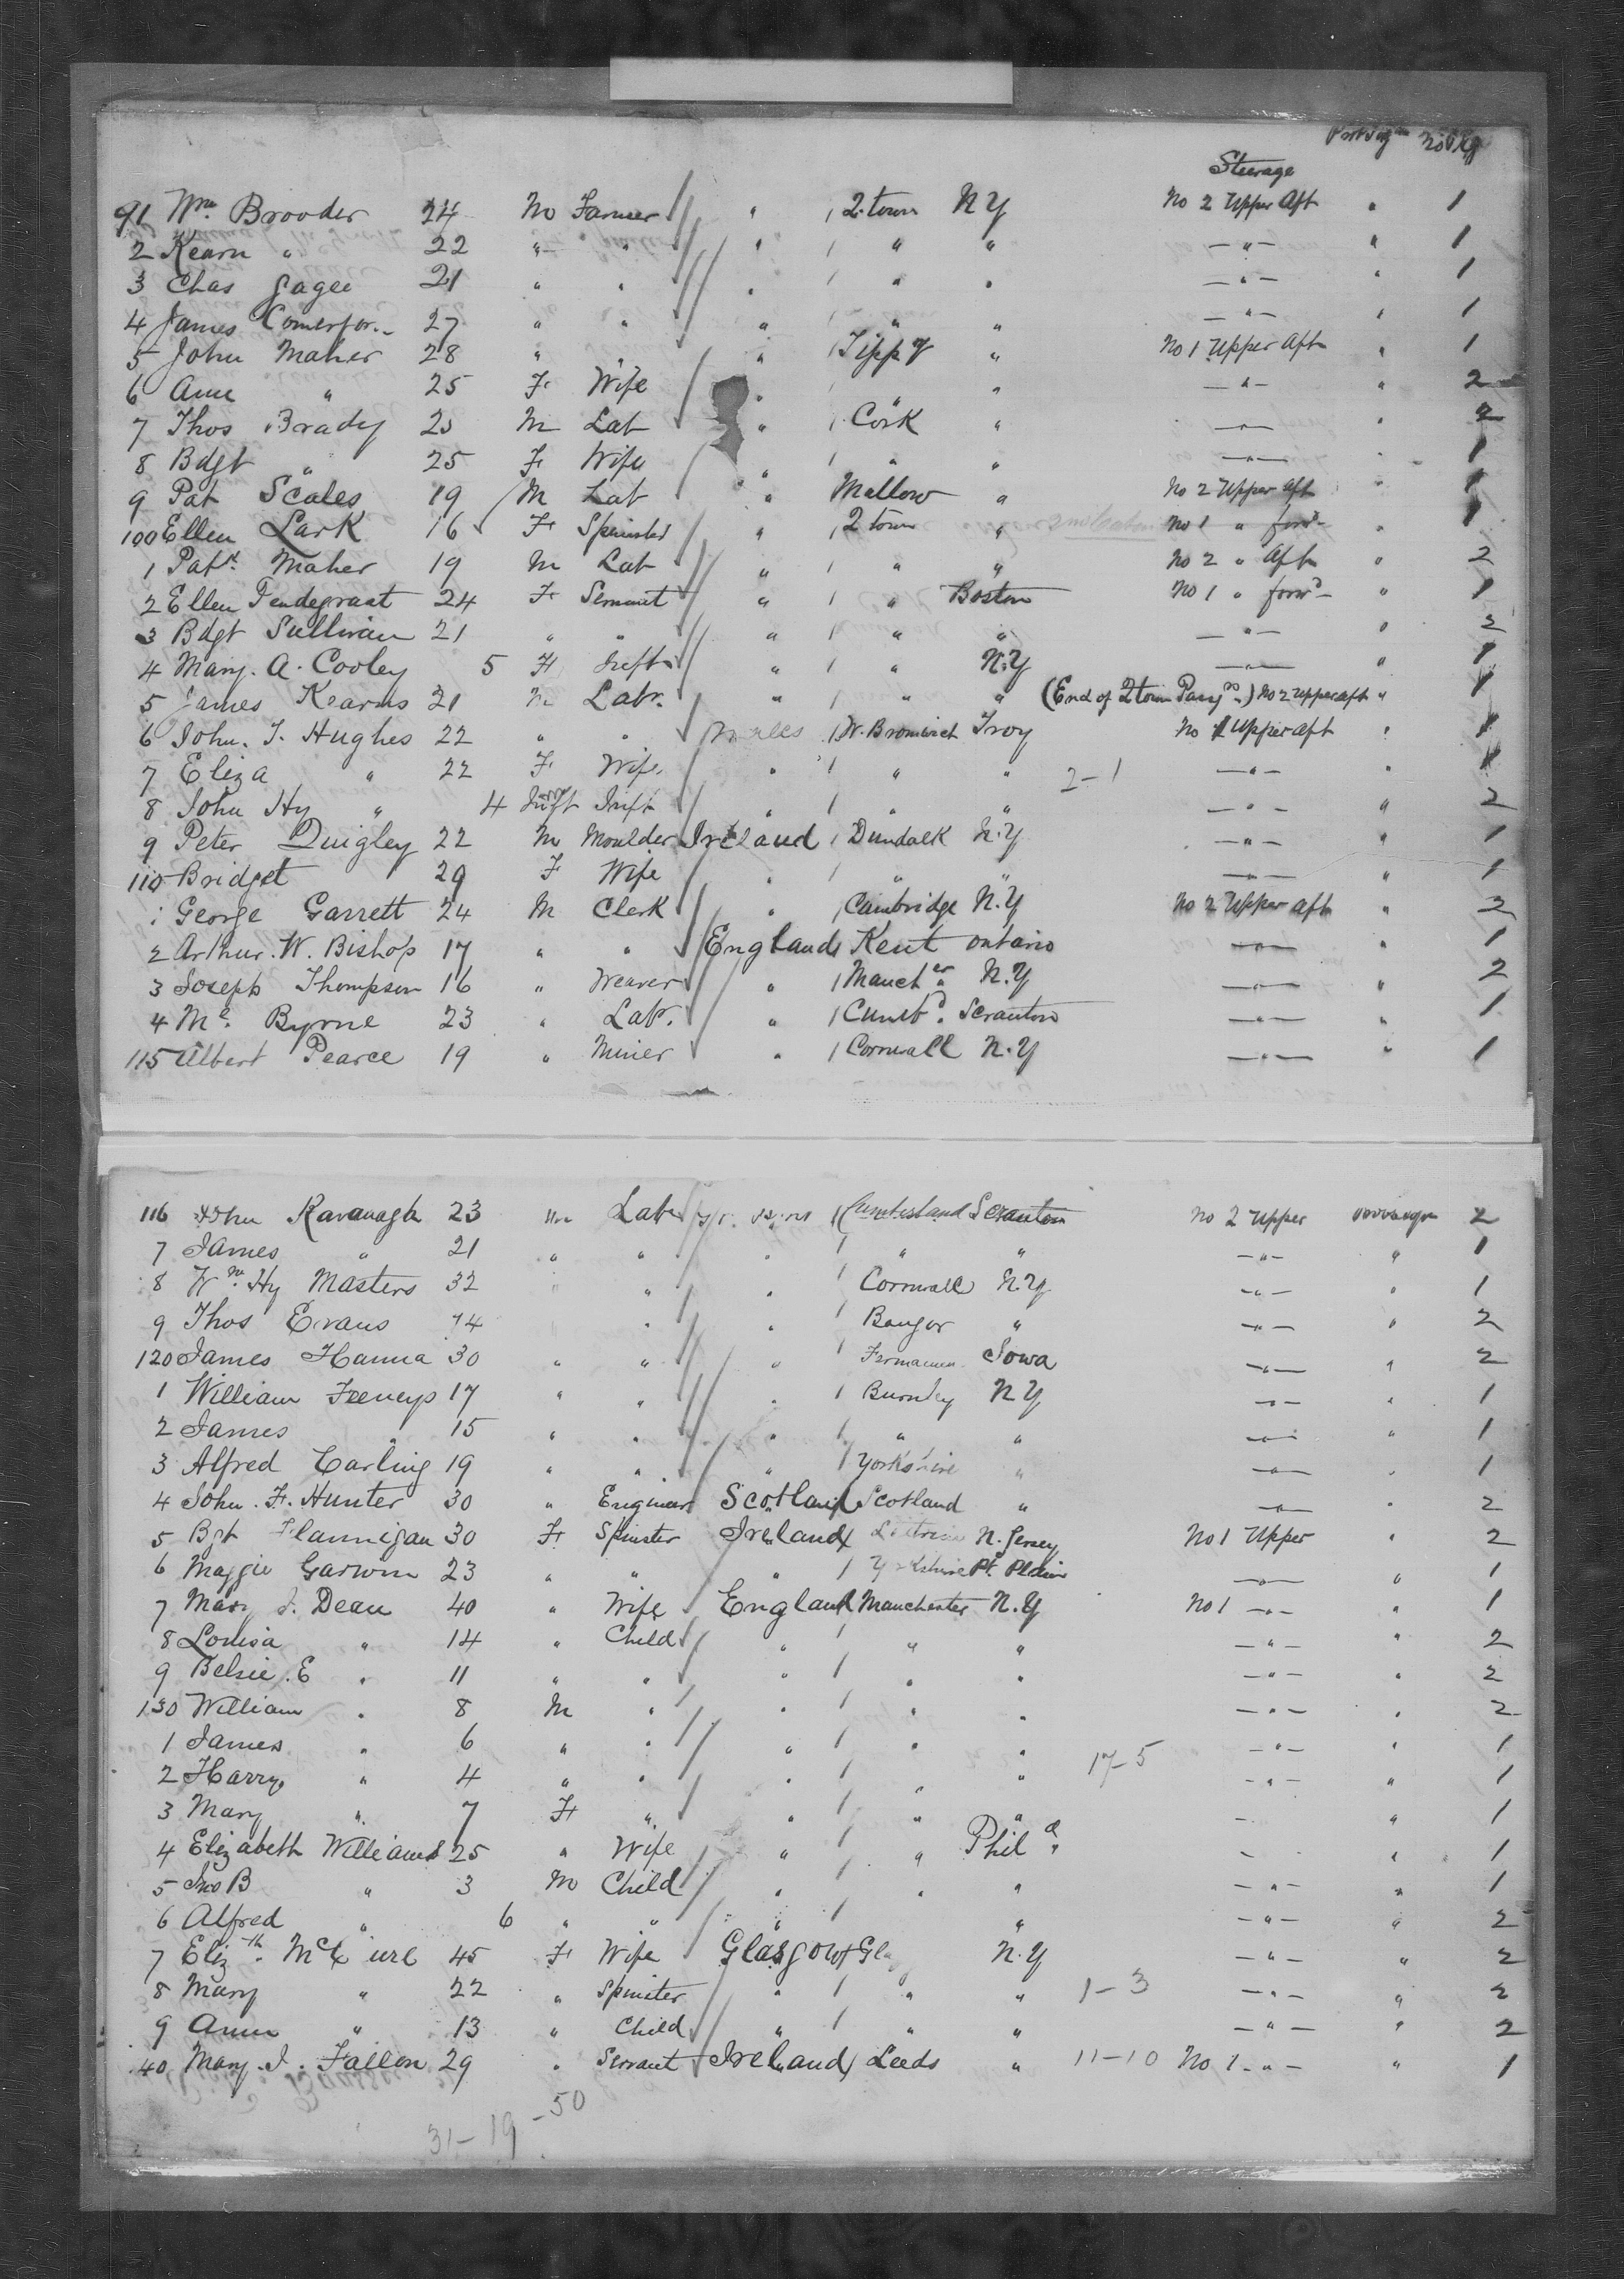 Steerage
91 Wm. Brooder 24 M Farmer " 1 2.town N Y No 2 Upper Aft " 1
2 Kearn " 22 " " " 1 " " — " — " 1
3 Chas 21 " " " 1 " " — " — " 1
4 James 27 " " " " " — " — " 1
5 John Maher 28 " " " 1 Tippy " No 1 Upper Aft " 1
6 Ann " 25 F Wife " 1 " " — " — " 2
7 Thos Brady M Lab " 1 Cork " — " — " 2
8 Bdgt " 25 F Wife " 1 " " — " — " 1
9 Pat Scales 19 M Lab " Mallow " No 2 Upper Aft " 1
100 Ellen Lark 16 F Spinster " 1 2 town " No 1 " forwd " 1
1 Patk. Maher 19 M Lab " 1 " " No 2 " Aft " 2
2 Ellen 24 F Servant " 1 " Boston No 1 " forwd " 1
3 Bdgt Sullivan 21 " " " 1 " " — " — " 2
4 Mary. A. Cooley 5 F Infts " 1 " N.Y — " — " 1
5 James Kearns 21 M Labr. " 1 " " (End of 2town Pasgrs.) No 2 upper aft " 1
6 John. T. Hughes 22 " " Wales 1 W. Bromwich Troy No 1 Upper aft " 1
7 Eliza " 22 F Wife " 1 " " 2-1 — " — " 1
8 John Hy " 4 Inft " 1 " " — " — " 2
9 Peter Quigley 22 M Moulder Ireland 1 Dundalk N.Y — " — " 1
110 Bridget 29 F Wife " 1 " " — " — " 1
1 George Garrett 24 M Clerk " 1 Cambridge N.Y No 2 Upper aft " 2
2 Arthur. W. Bishop 17 " " England 1 Kent ontario — " — " 1
3 Joseph Thompson 16 " Weaver " 1 Manchr N.Y — " — " 2
4 Byrne 23 " Labr. " 1 Scranton — " — " 1
115 Albert Pearce 19 " Miner " 1 Cornwall N.Y — " — " 1
116 John Kavanagh 23 M Labr 1 Cumberland Scranton No 2 Upper 2
7 James " 21 " " " 1 " " — " — " 1
8 Wm. Hy Masters 32 " " 1 Cornwall N.Y — " — " 1
9 Thos Evans " " 1 Bangor " — " — " 2
120 James Hanna 30 " " " 1 Iowa — " — " 2
1 William 17 " " " 1 Burnley N Y — " — " 1
2 James " 15 " " " 1 " " — " — " 1
3 Alfred Carling 19 " " " 1 Yorkshire " — " — " 1
4 John. F. Hunter 30 " Engineer Scotland Scotland " — " — " 2
5 Bgt Flannigan 30 F Spinster Ireland 1 Leitrim N. Jersey No 1 Upper " 2
6 Maggie 23 " " " 1 Yorkshire — " — " 1
7 Mary J. Dean 40 " Wife England Manchester N.Y No 1 — " — " 1
8 Louisa " 14 " Child " 1 " " — " — " 2
9 E " 11 " " " 1 " " — " — " 2
130 William " 8 M " " 1 " " — " — " 2
1 James " 6 " " " 1 " " — " — " 1
2 Harry " 4 " " " 1 " " 17-5 — " — " 1
3 Mary " 7 F " " 1 " " " 1
4 Elizabeth Williams 25 " Wife " 1 " Phila " 1
5 Jno B " 3 M Child " 1 " " — " — " 1
6 Alfred " 6 " " " 1 " — " — " 2
7 Elizth. 45 F Wife Glasgow N.Y — " — " 2
8 Mary " 22 " Spinster " 1 " " 1-3 — " — " 2
9 Ann " 13 " Child " 1 " " — " — " 2
40 Mary. J. Fallon 29 " Servant Ireland 1 Leeds " 11-10 No 1 — " — " 1
31-19-50